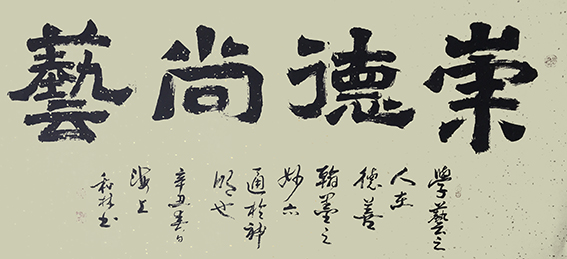 崇德尚藝
學藝之
人在
德善
翰墨之
妙亦
通於神
明也
辛丑春日
海上
林书